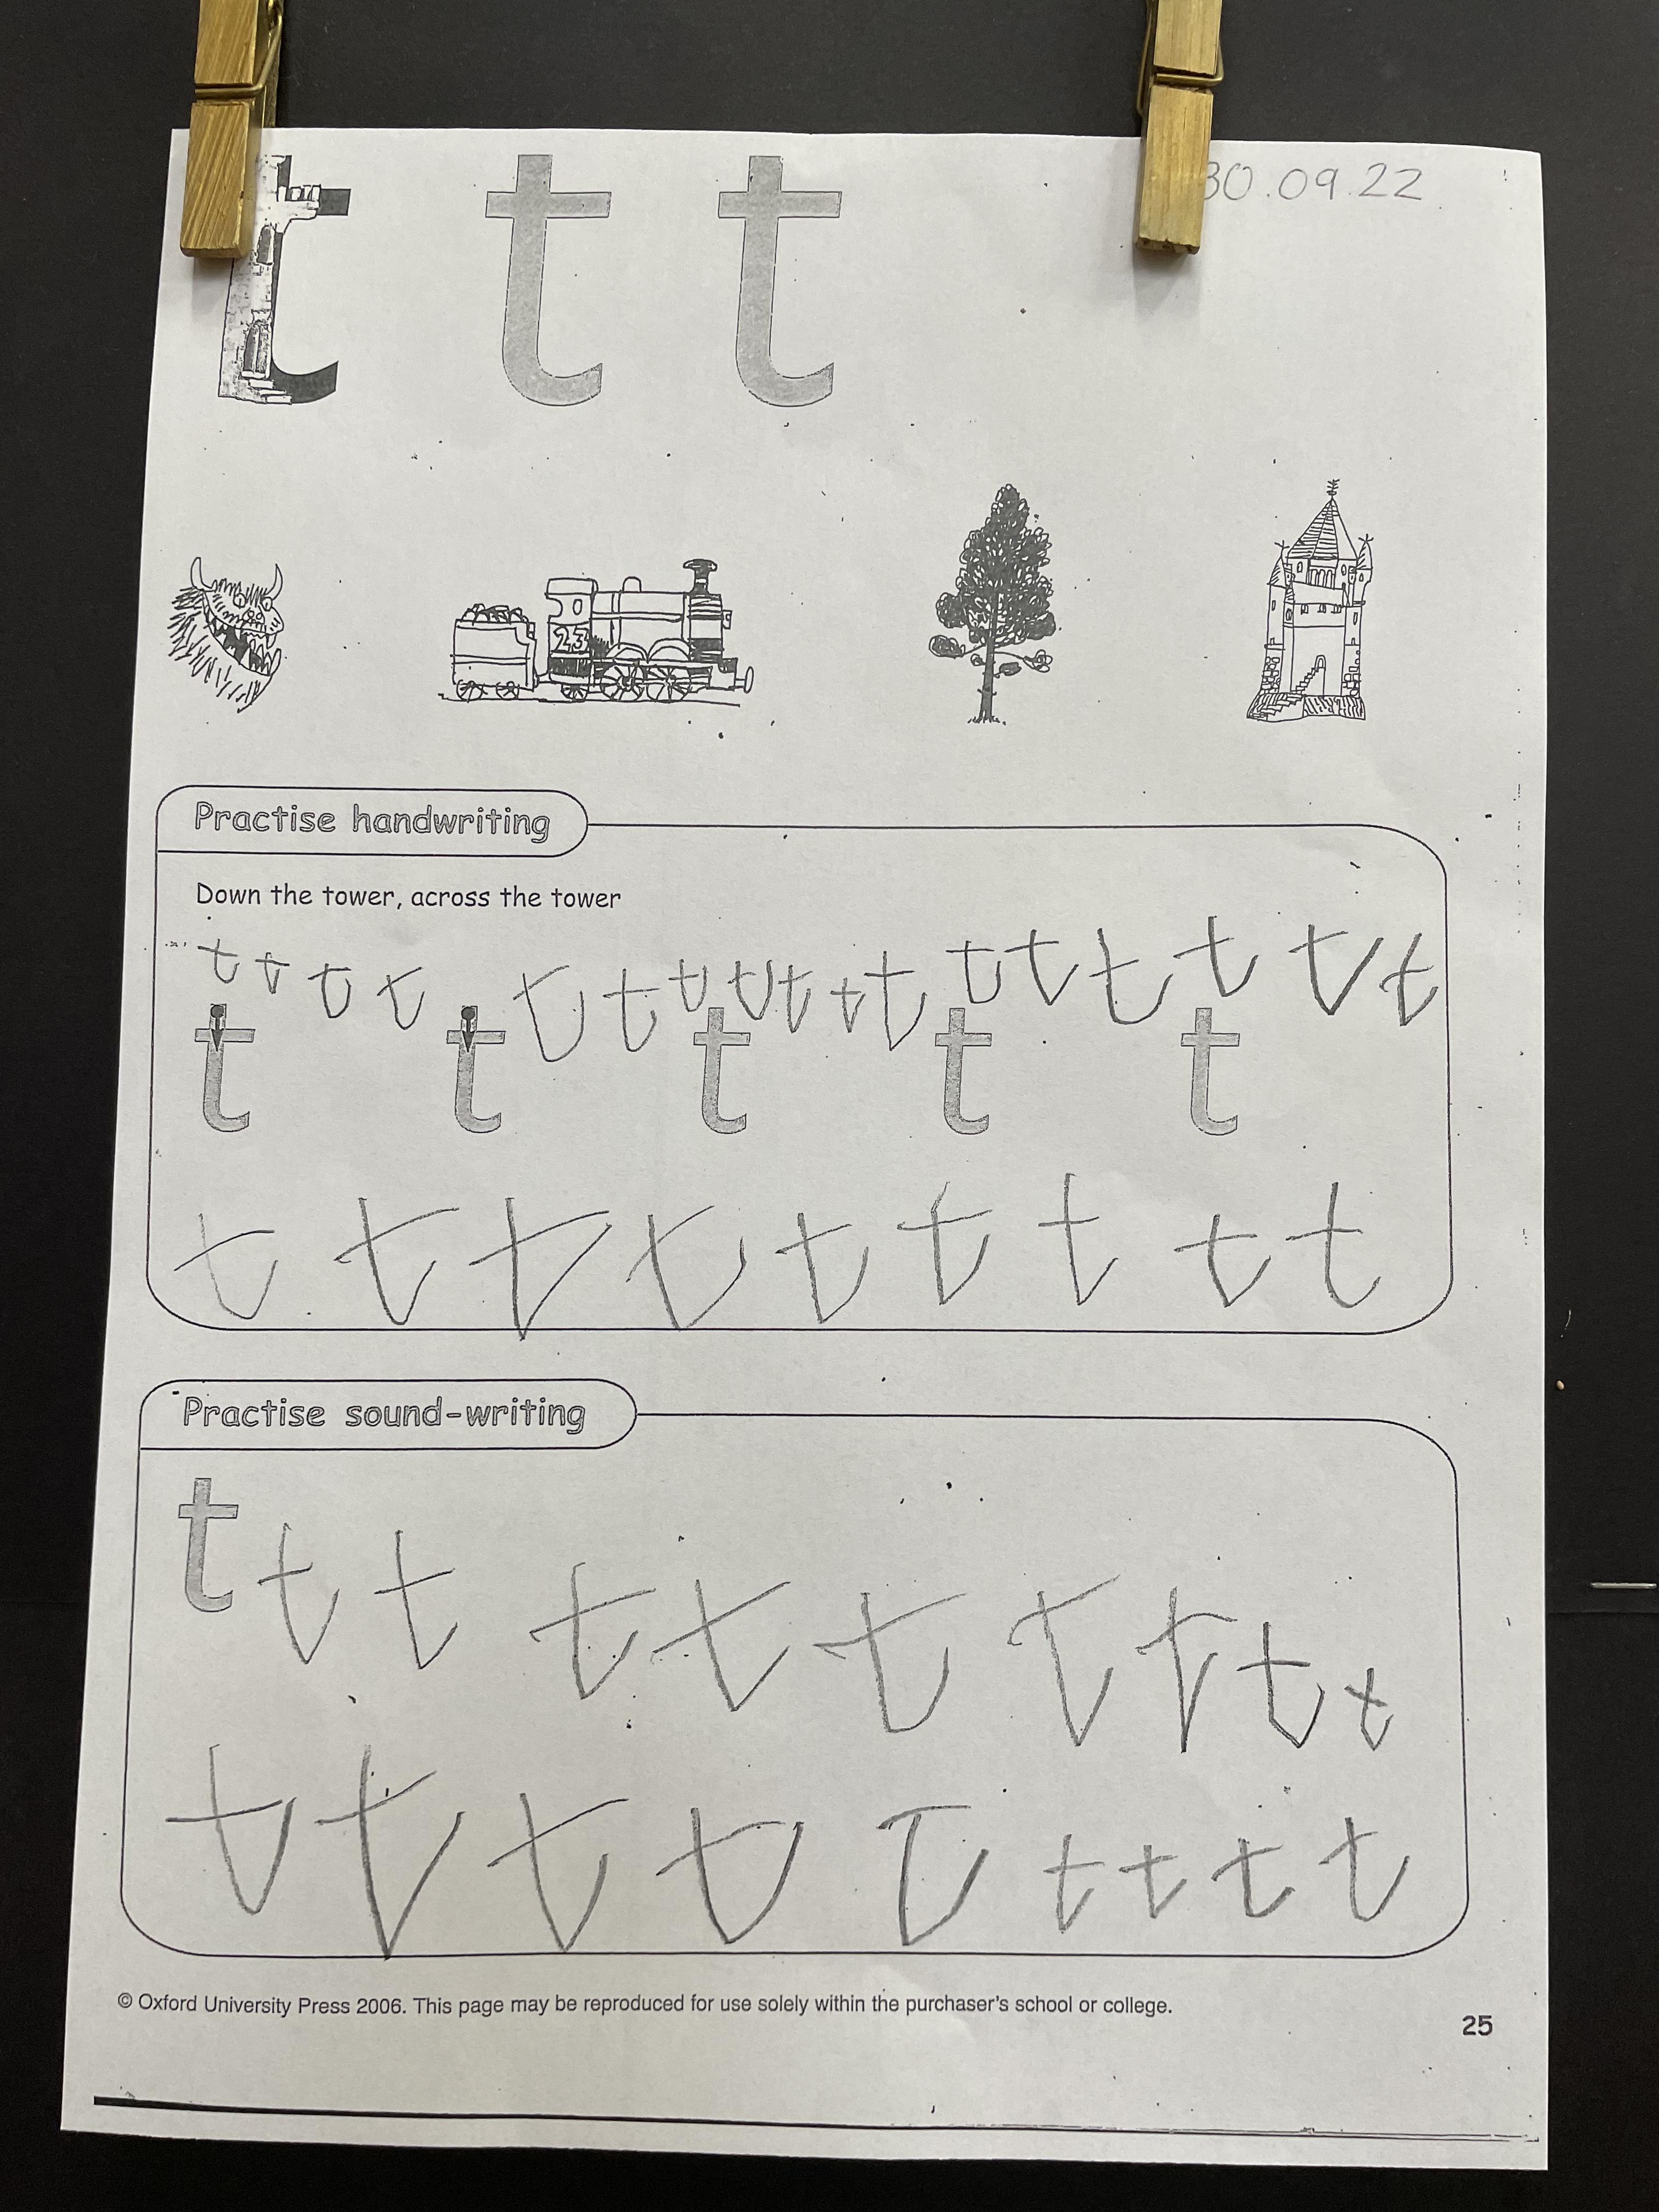 t t t 30.09.22
23
Practise handwriting
Down the tower, across the tower
t t t t t t t t t t t t t t t t t
t t t t t
t t t t t t t t t
Practise sound-writing
t t t t t t t t t t
t t t t t t t t t
© Oxford University Press 2006. This page may be reproduced for use solely within the purchaser's school or college.
25